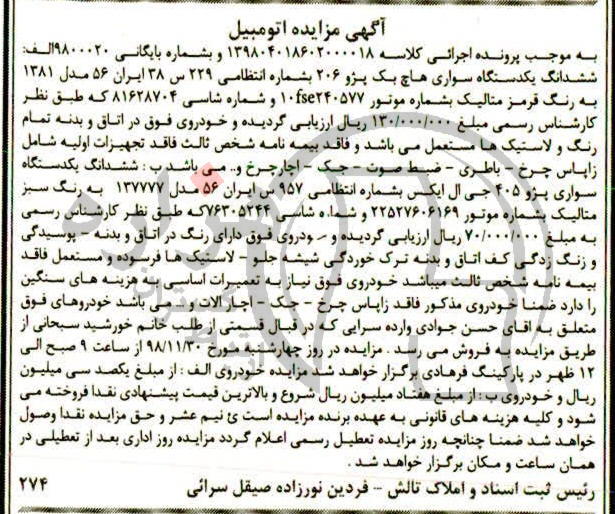 آگهی مزایده اتومبیل
به موجب پرونده اجرائی کلاسه ۱۳۹۸۰۴۰۱۸۶۰۲۰۰۰۰۱۸ و بشماره بایگانی ۹۸۰۰۰۲۰الف:
ششدانگ یکدستگاه سواری هاچ بک پژو ۲۰۶ بشماره انتظامی ۲۲۹ س ۳۸ ایران ۵۶ مدل ۱۳۸۱
به رنگ قرمز متالیک بشماره موتور ۱۰fse۲۴۰۵۷۷ و شماره شاسی ۸۱۶۲۸۷۰۴ که طبق نظر
کارشناس رسمی مبلغ ۱۳۰/۰۰۰/۰۰۰ ریال ارزیابی گردیده و خودروی فوق در اتاق و بدنه تمام
رنگ و لاستیک ها مستعمل می باشد و فاقد بیمه نامه شخص ثالث فاقد تجهیزات اولیه شامل
زاپاس چرخ – باطری – ضبط صوت – جک – اچارچرخ و.. می باشد ب : ششدانگ یکدستگاه
سواری پژو ۴۰۵ جی ال ایکس بشماره انتظامی ۹۵۷ س ایران ۵۶ مدل ۱۳۷۷۷۷ به رنگ سبز
متالیک بشماره موتور ۲۲۵۲۷۶۰۶۱۶۹ و شماره شاسی ۷۶۳۰۵۲۴۴که طبق نظر کارشناس رسمی
به مبلغ ۷۰/۰۰۰/۰۰۰ ریال ارزیابی گردیده و خودروی فوق دارای رنگ در اتاق و بدنه – پوسیدگی
و زنگ زدگی کف اتاق و بدنه ترک خوردگی شیشه جلو – لاستیک ها فرسوده و مستعمل فاقد
بیمه نامه شخص ثالث میباشد خودروی فوق نیاز به تعمیرات اساسی به هزینه های سنگین
را دارد ضمنا خودروی مذکور فاقد زاپاس چرخ – جک – اچار الات و می باشد خودروهای فوق
متعلق به اقای حسن جوادی وارده سرایی که در قبال قسمتی از طلب خانم خورشید سبحانی از
طریق مزایده به فروش می رسد . مزایده در روز چهارشنبه مورخ ۹۸/۱۱/۳۰ از ساعت ۹ صبح الی
۱۲ ظهر در پارکینگ فرهادی برگزار خواهد شد مزایده خودروی الف : از مبلغ یکصد سی میلیون
ریال و خودروی ب : از مبلغ هفتاد میلیون ریال شروع و بالاترین قیمت پیشنهادی نقدا فروخته می
شود و کلیه هزینه های قانونی به عهده برنده مزایده است ئ نیم عشر و حق مزایده نقدا وصول
خواهد شد ضمنا چنانچه روز مزایده تعطیل رسمی اعلام گردد مزایده روز اداری بعد از تعطیلی در
همان ساعت و مکان برگزار خواهد شد .
رئیس ثبت اسناد و املاک تالش – فردین نورزاده صیقل سرائی ۲۷۴